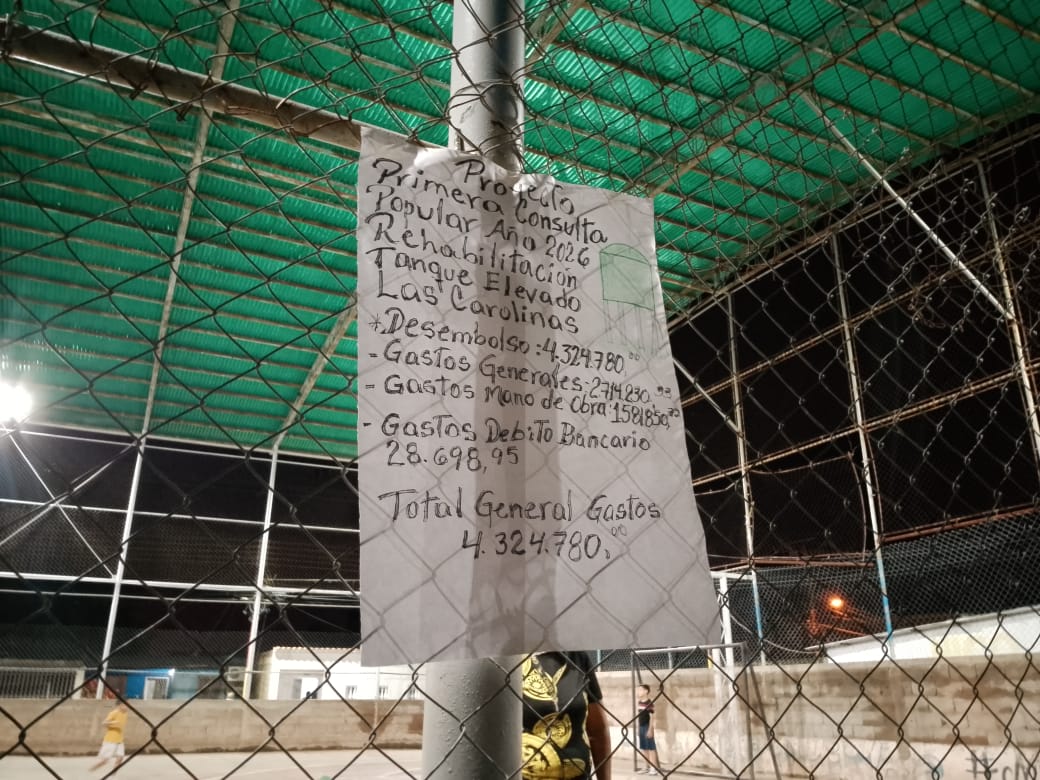 Proyecto
Primera Consulta
Popular Año 2026
Rehabilitación
Tanque Elevado
Las Carolinas
*Desembolso: 4.324.780,00
- Gastos Generales: 2.714.230,93
- Gastos Mano de Obra: 1581850,
- Gastos Debito Bancario
28.698,95
Total General Gastos
4.324.780,00